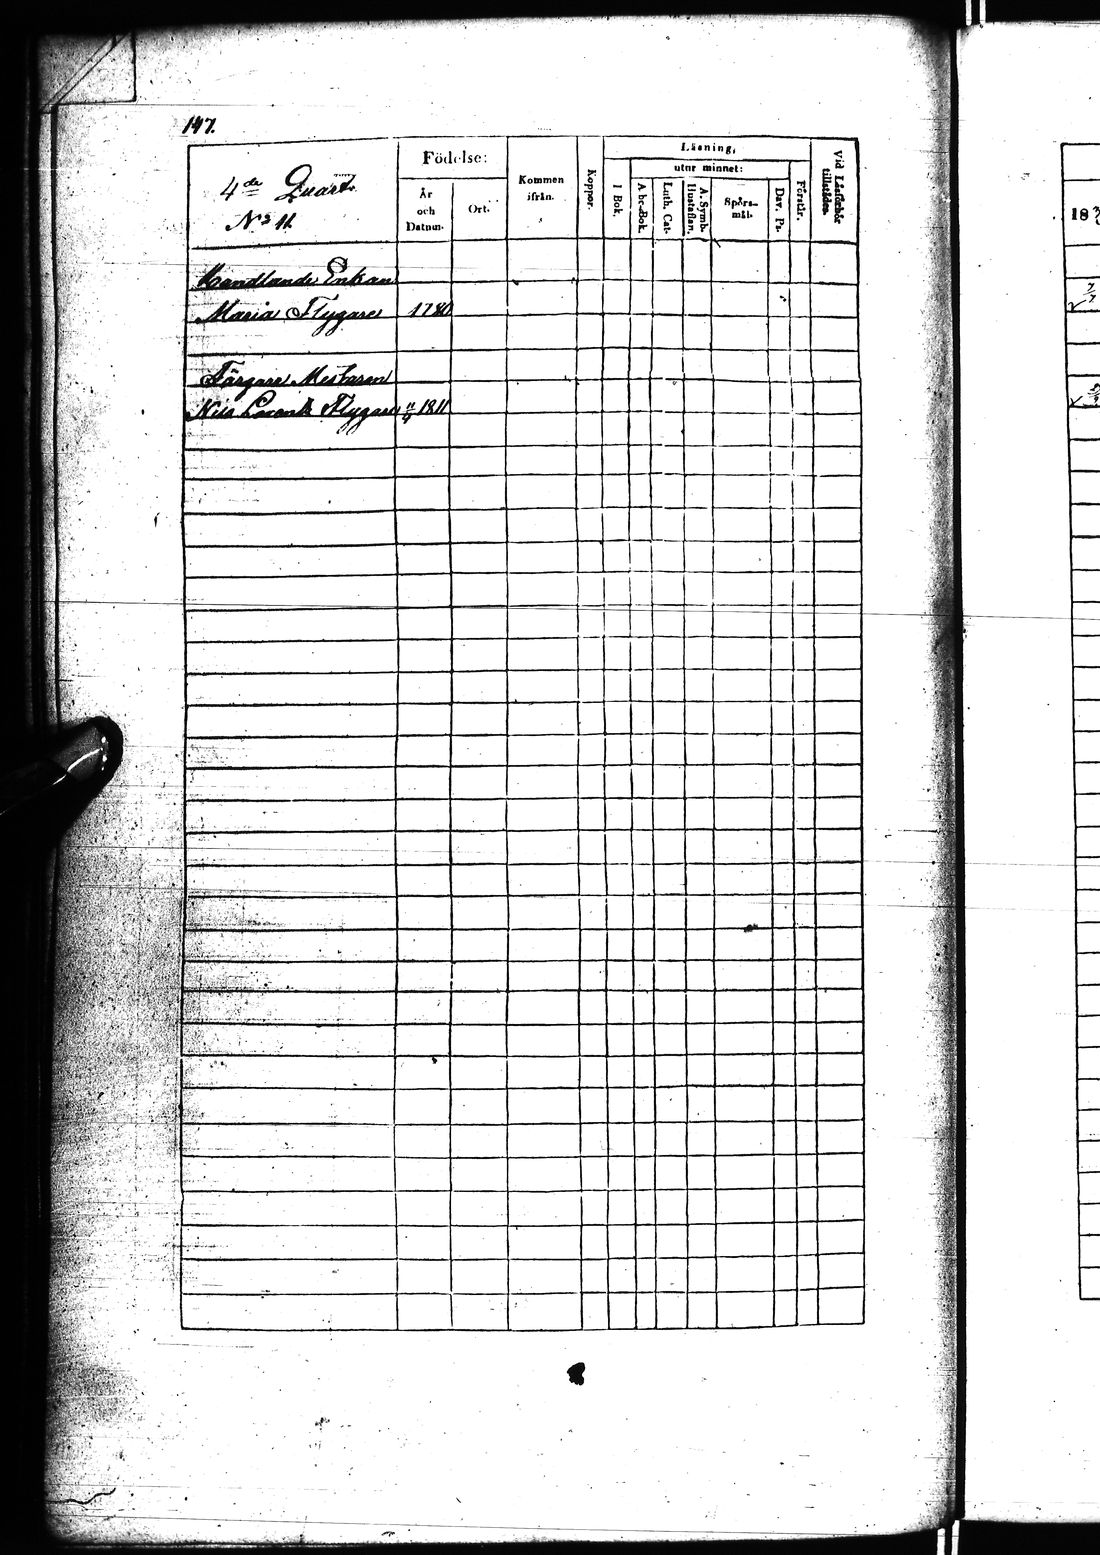 147.
4de Quart.
No 11.
Födelse:
År
och
Datum.
Ort.
Kommen
ifrån.
Koppor.
Läsning,
I Bok.
utur minnet:
A bc-Bok.
Luth. Cat.
A. Symb.
Hustaflan.
Spörs-
mål.
Dav. Ps.
Förstår.
Vid Läsförhör
tillstädes.
18
Handlande Enkan
Maria Flygare 1780
Färgare Mestaren
Nils Flygare 1811